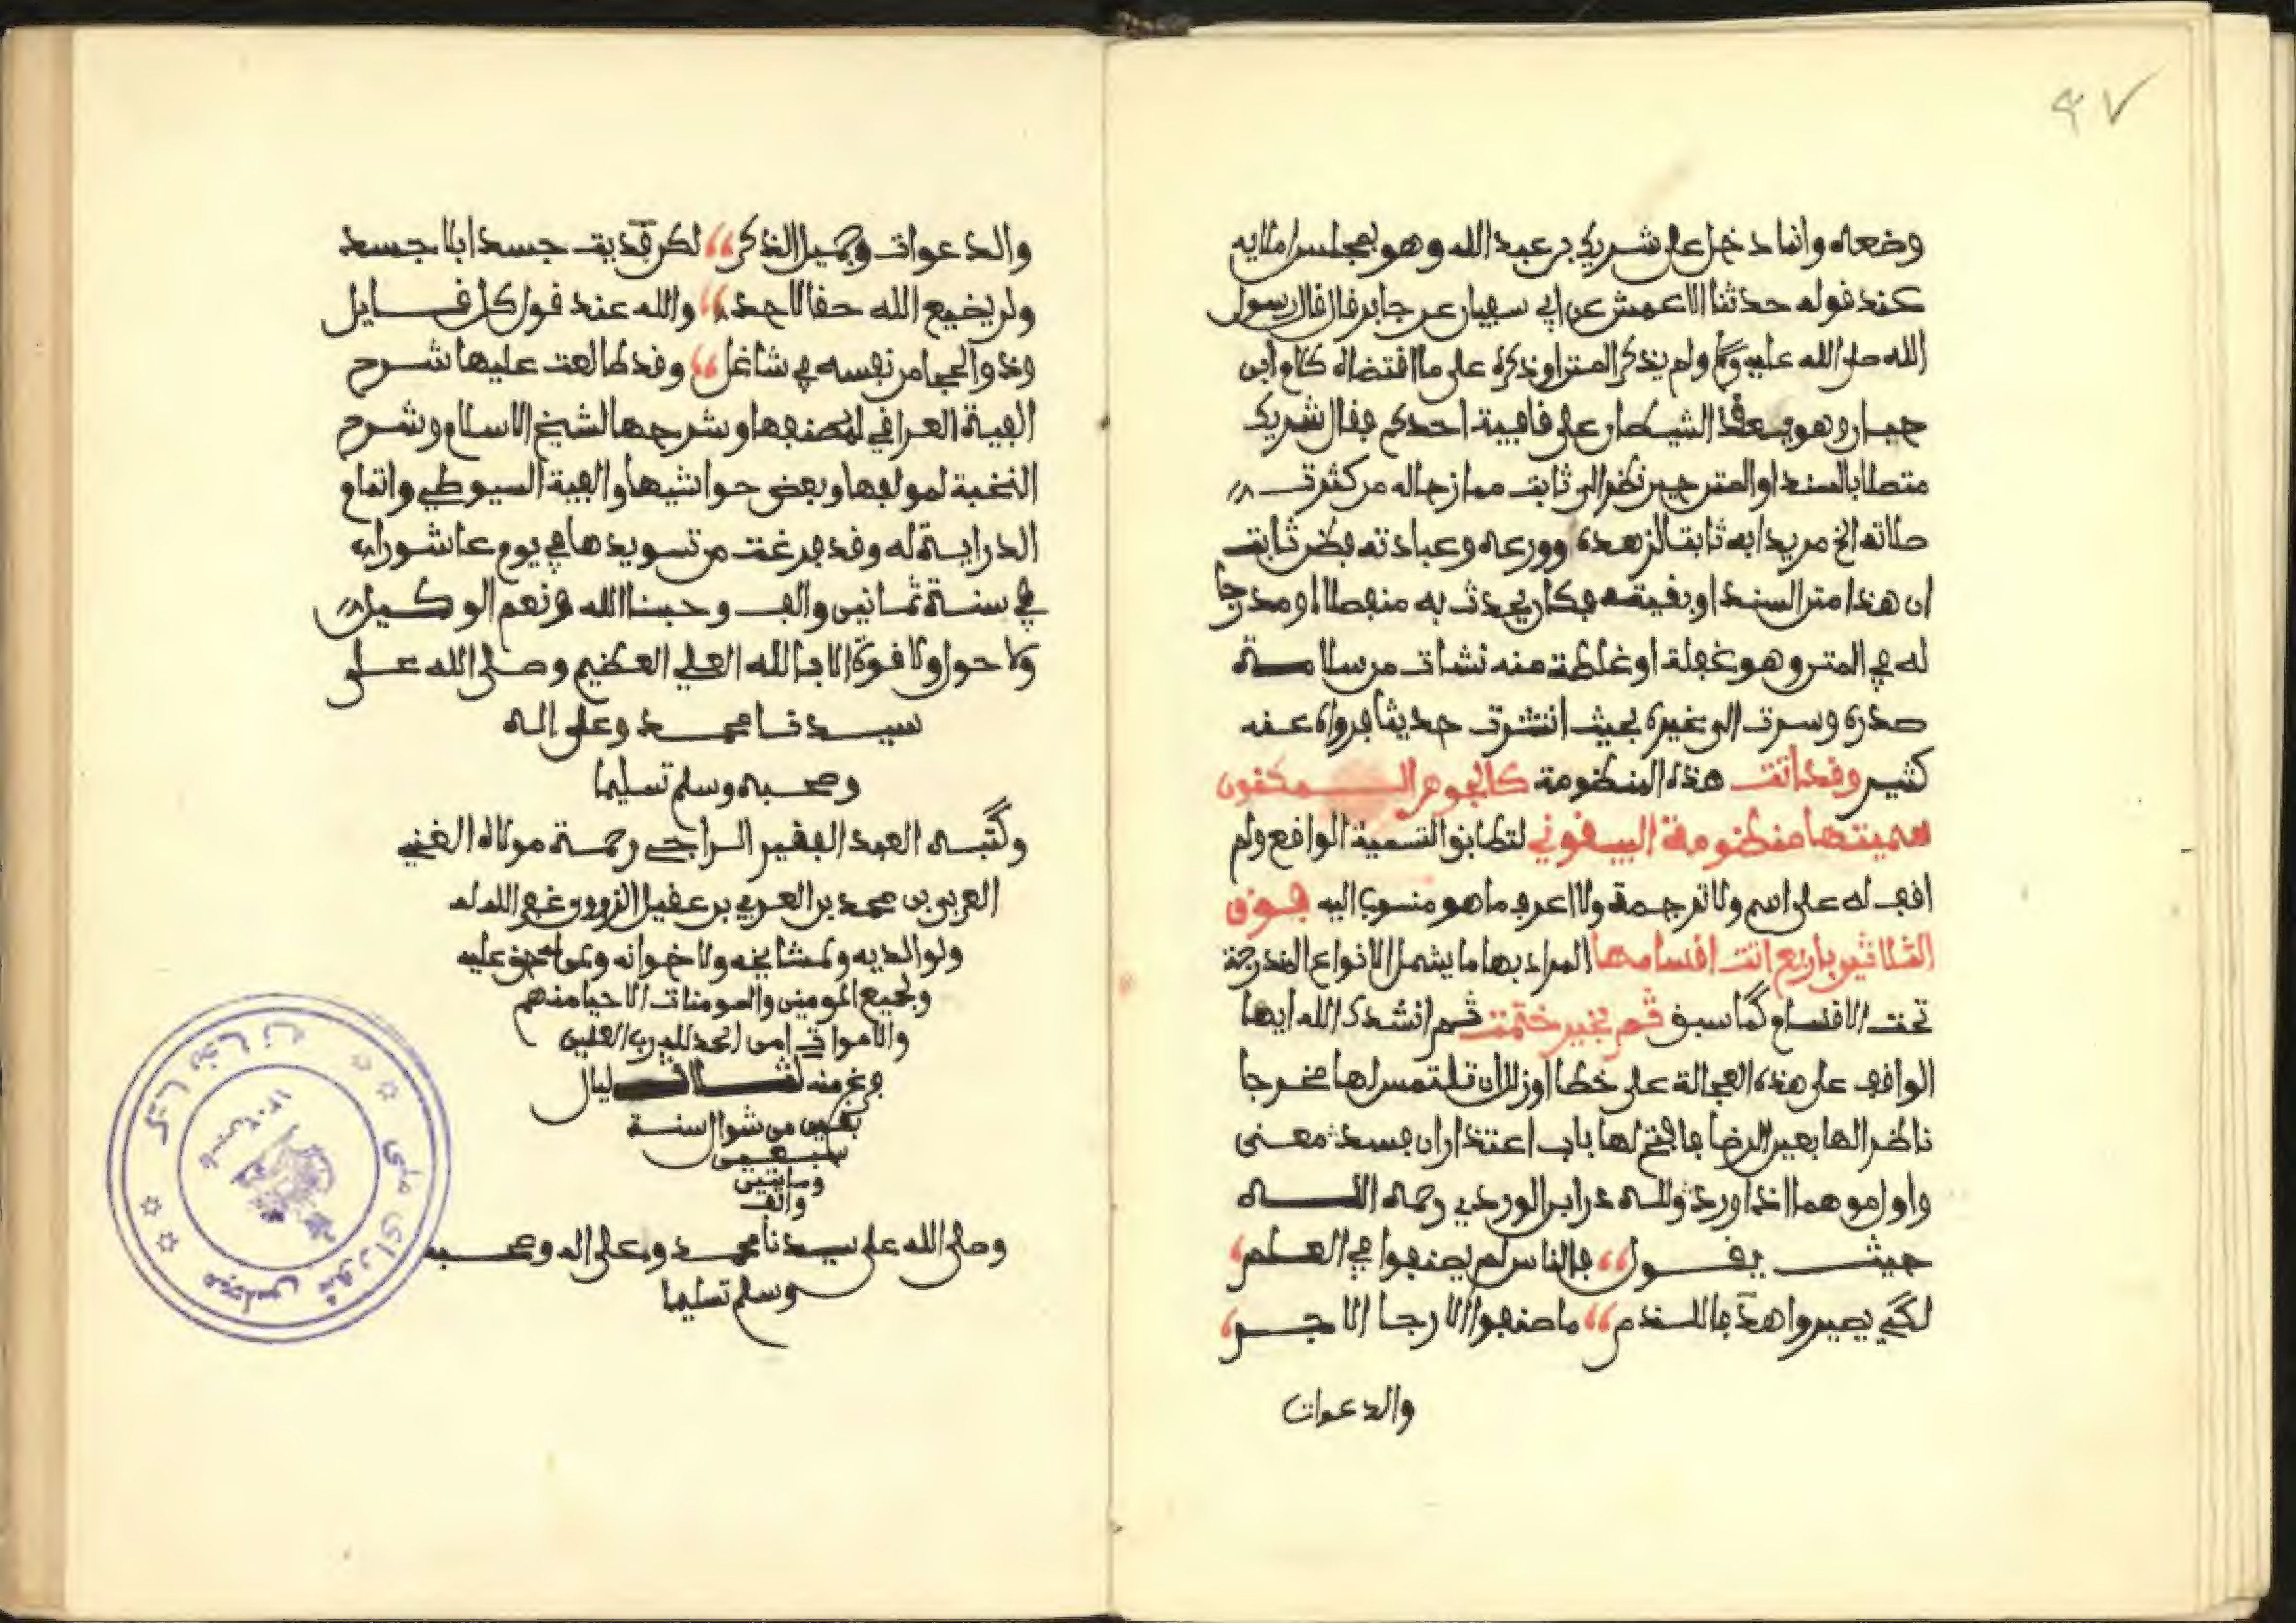 ٤٧
وضعه وانما دخل على شريك بن عبد الله وهو بمجلس املايه
عند قوله حدثنا الاعمش عن ابي سفيان عن جابر قال قال رسول
الله صلى الله عليه وسلم ولم يذكر المتن او ذكره على ما اقتضاه كلام ابن
حبان وهو يعقد الشيطان على قافية احدكم فقال شريك
متصلا بالسند او المتن حين نظر الى ثابت ممازحا له من كثرت
صلاته الخ مريدا به ثابت لزهده وورعه وعبادته فظن ثابت
ان هذا متن السند او بقيته فكان يحدث به منفصلا او مدرجا
له في المتن وهو غفلة او غلطة منه نشات من سلامة
صدره وسرت الى غيره بحيث انتشرت حديثا فرواه عنه
كثير وقد اتت هذه المنظومة كالجوهر المكنون
سميتها منظومة البيقوني لتطابق التسمية الواقع ولم
اقف له على اسم ولا ترجمة ولا اعرف ما هو منسوب اليه فوق
الثلاثين باربع اتت اقسامها المراد بها ما يشمل الانواع المندرجة
تحت الاقسام كما سبق ثم بخير ختمت ثم انشدك الله ايها
الواقف على هذه العجالة على خطا او زلل ان تلتمس لها مخرجا
ناظر الها بعين الرضا فافتح لها باب اعتذار ان فسد معنى
واول موهما اذا ورد ولله در ابن الوردي رحمه الله
حيث يقول فالناس لم يصنفوا في العلم
لكي يصيروا هدفا للذم ما صنفوا الا رجا الاجر
والدعوات
والدعوات وجميل الذكر لكن فديت جسدا بلا جسد
ولن يضيع الله حقا لاحد والله عند قول كل قايل
وذو الحجا من نفسه في شاغل وقد طالعت عليها شرح
الفية العراقي لمصنفها وشرحها لشيخ الاسلام وشرح
النخبة لمولفها وبعض حواشيها والفية السيوطي واتمام
الدراية له وقد فرغت من تسويدها في يوم عاشوراء
في سنة ثمانين والف وحسبنا الله ونعم الوكيل
ولا حول ولا قوة الا بالله العلي العظيم وصلى الله على
سيدنا محمد وعلى اله
وصحبه وسلم تسليما
وكتبه العبد الفقير الراجي رحمة مولاه الغني
العربي بن محمد بن العربي بن عقيل غفر الله له
ولوالديه ولمشايخه ولاخوانه ولمن له حق عليه
ولجميع المومنين والمومنات الاحيا منهم
والاموات امين الحمد لله رب العلمين
وفرغ منه لثلاث ليال
بقين من شوال سنة
سبعين
ومايتين
والف
وصلى الله على سيدنا محمد وعلى اله وصحبه
وسلم تسليما
كتابخانه مجلس شورای ملی